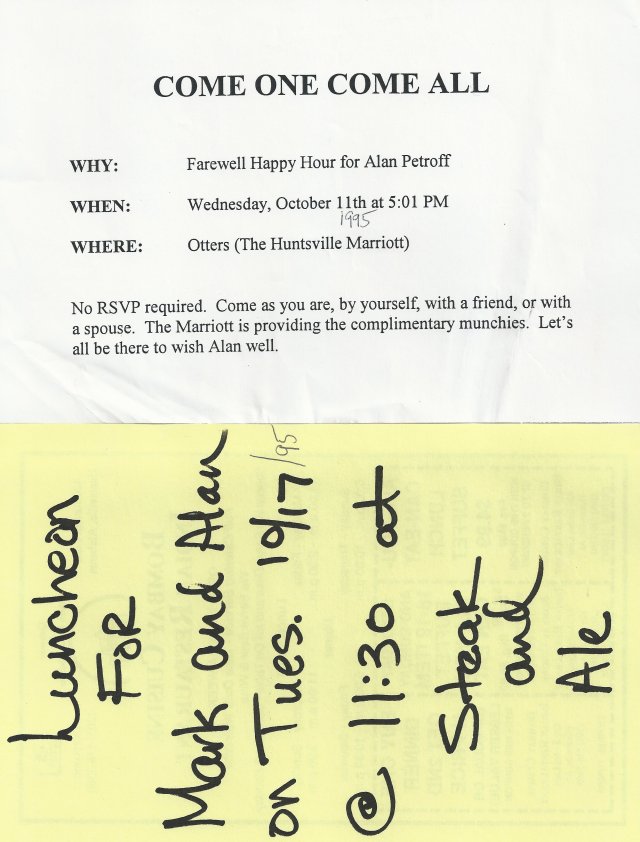 COME ONE COME ALL
WHY: Farewell Happy Hour for Alan Petroff
WHEN: Wednesday, October 11th at 5:01 PM
1995
WHERE: Otters (The Huntsville Marriott)
No RSVP required. Come as you are, by yourself, with a friend, or with
a spouse. The Marriott is providing the complimentary munchies. Let's
all be there to wish Alan well.
Luncheon
FoR
Mark and Alan
on Tues. 10/17/95
@ 11:30 at
Steak
and
Ale